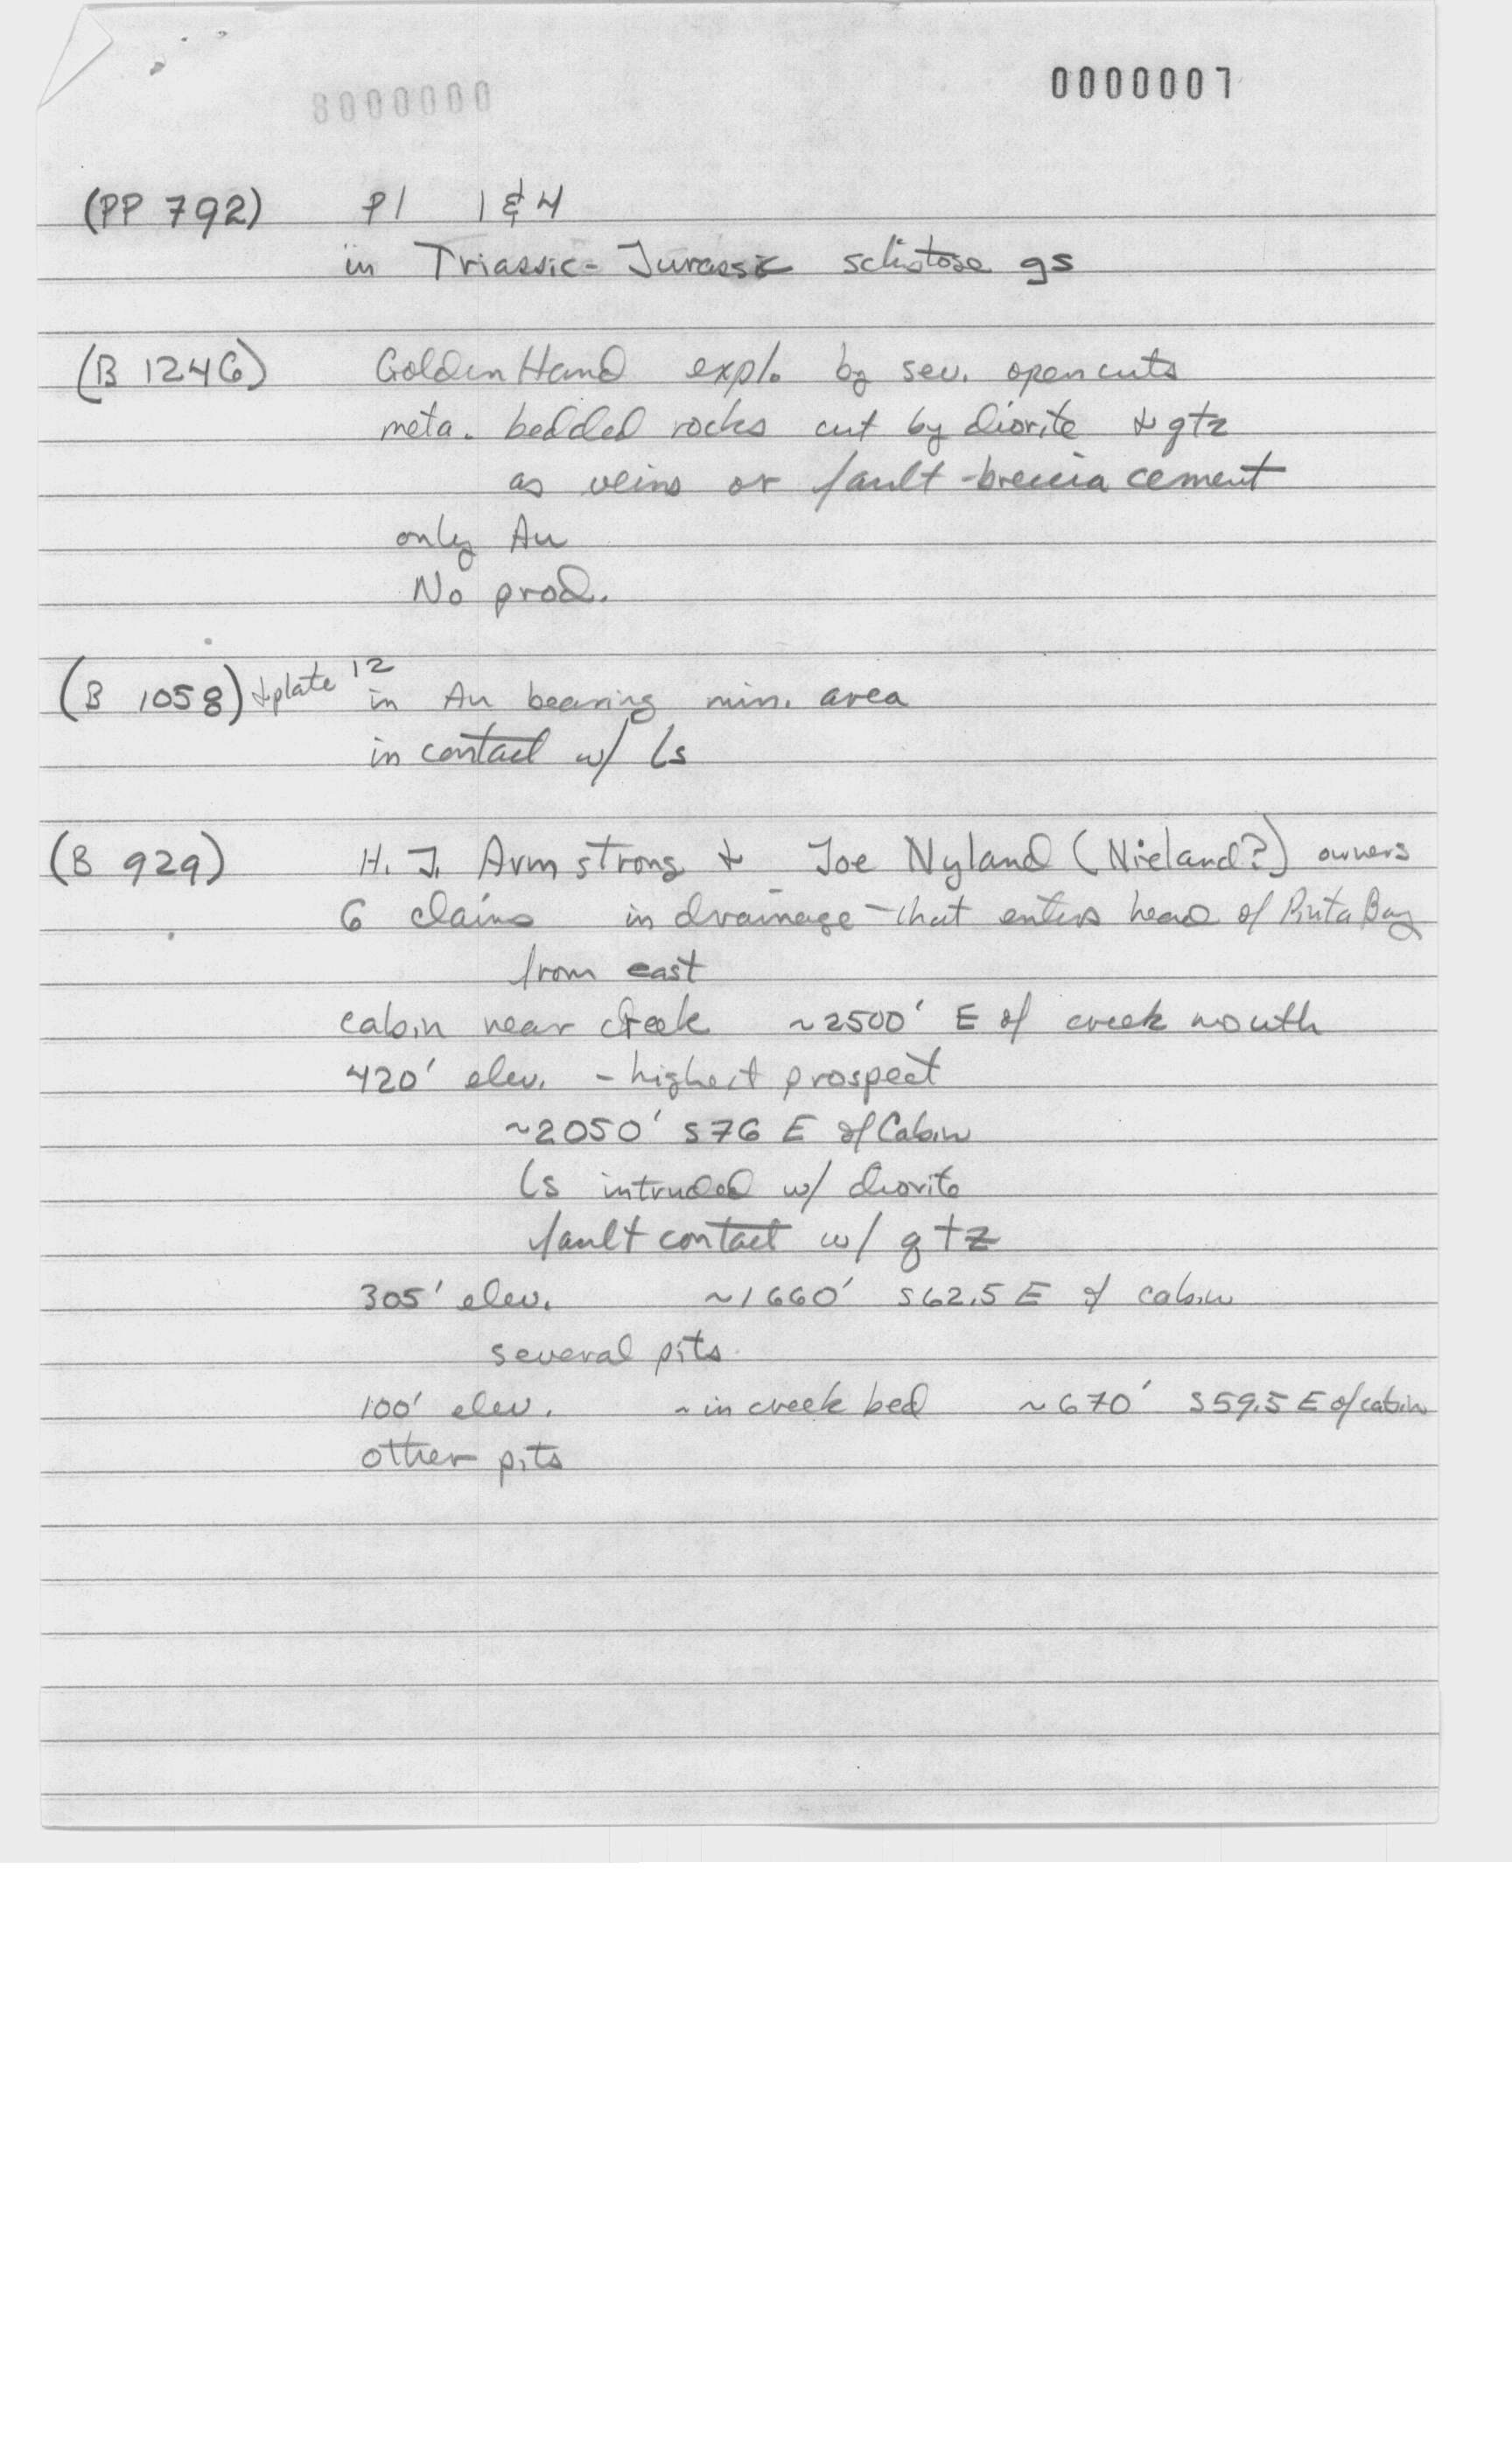 8000000
0000007
(PP 792) Pl 1 & 4
in Triassic-Jurassic schistose gs
(B 1246) Golden Hand expl. by sev. opencuts
meta. bedded rocks cut by diorite & qtz
as veins or fault-breccia cement
only Au
No prod.
(B 1058) & plate 12 in Au bearing min. area
in contact w/ ls
(B 929) H. J. Armstrong & Joe Nyland (Nieland?) owners
6 claims in drainage that enters head of Pinta Bay
from east
cabin near creek ~2500' E of creek mouth
420' elev. - highest prospect
~2050' S76 E of Cabin
ls intruded w/ diorite
fault contact w/ qtz
305' elev. ~1660' S62.5 E of cabin
several pits
100' elev. ~ in creek bed ~670' S59.5 E of cabin
other pits